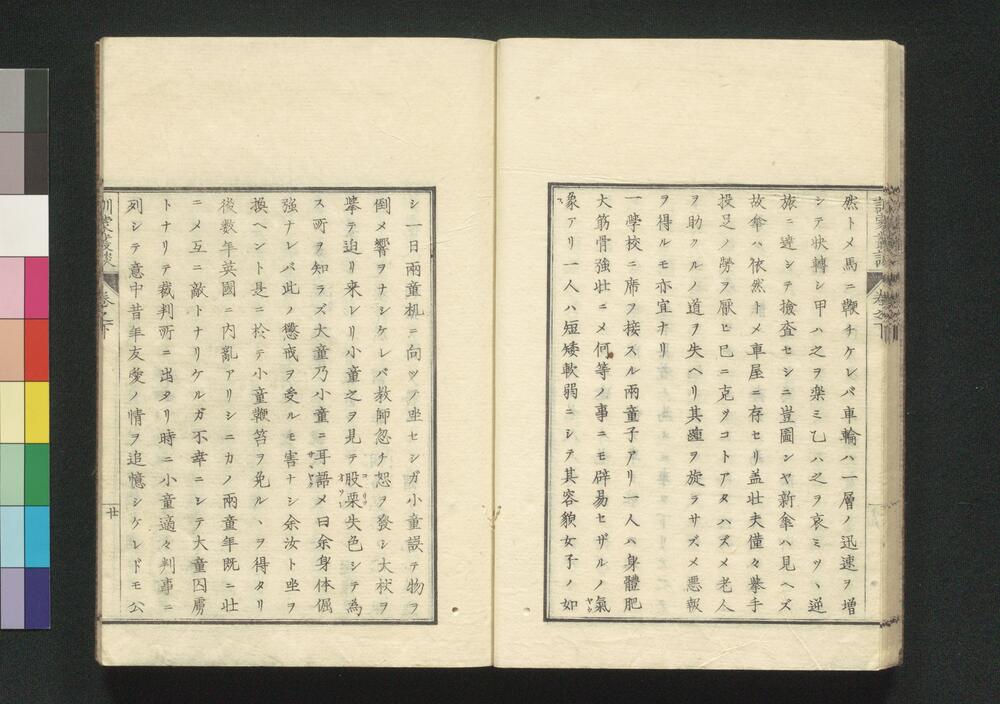 然トメ馬ニ鞭チケレバ車輪ハ一層ノ迅速ヲ増
シテ快轉シ甲ハ之ヲ楽ミ乙ハ之ヲ哀ミツヽ逆
旅ニ達シテ撿査セシニ豈圖ンヤ新傘ハ見ヘズ
故傘ハ依然トメ車屋ニ存セリ盖壮夫僮々挙手
投足ノ勞ヲ厭ヒ巳ニ克ツコトアタハズメ老人
ヲ助クルノ道ヲ失ヘリ其踵ヲ旋ラサズメ悪報
ヲ得ルモ亦宜ナリ
一學校ニ席ヲ接スル兩童子アリ一人ハ身體肥
大筋骨強壮ニメ何等ノ事ニモ辟易セザルノ氣
象アリ一人ハ短矮軟弱ニシテ其容貌女子ノ如
シ一日兩童机ニ向ツテ坐セシガ小童誤テ物ヲ
倒メ響ヲナシケレバ教師忽チ怒ヲ發シ大杖ヲ
挙テ追リ来レリ小童之ヲ見テ股栗失色シテ為
ス所ヲ知ラズ大童乃小童ニ耳語メ曰余身体倔
強ナレバ此ノ懲戒ヲ受ルモ害ナシ余汝ト坐ヲ
換ヘント是ニ於テ小童鞭笞ヲ免ルヽヲ得タリ
後数年英國ニ内亂アリシニカノ兩童年既ニ壮
ニメ互ニ敵トナリケルガ不幸ニシテ大童囚虜
トナリテ裁判所ニ出タリ時ニ小童適々判事ニ
列シテ意中昔年友愛ノ情ヲ追憶シケレドモ公
訓蒙叢談
巻之下
廿